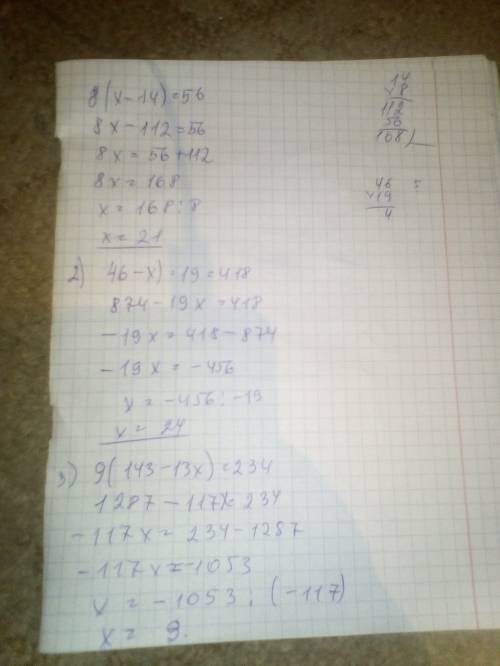 8(x-14)=56
8x-112=56
8x=56+112
8x=168
x=168:8
x=21
14
×8
112
56
168
46
×19
4
2) 46-x)=19=418
874-19x=418
-19x=418-874
-19x=-456
x=-456:-19
x=24
3) 9(143-13x)=234
1287-117x=234
-117x=234-1287
-117x=-1053
x=-1053:(-117)
x=9.